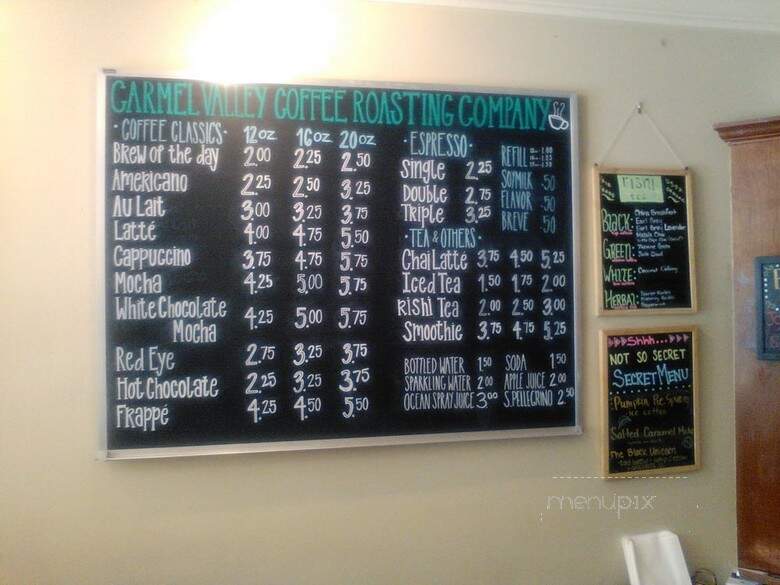 CARMEL VALLEY COFFEE ROASTING COMPANY
COFFEE CLASSICS 12oz 16oz 20oz
BREW OF THE DAY 2.00 2.25 2.50
AMERICANO 2.25 2.50 3.25
AU LAIT 3.00 3.25 3.75
LATTÉ 4.00 4.75 5.50
CAPPUCCINO 3.75 4.75 5.75
MOCHA 4.25 5.00 5.75
WHITE CHOCOLATE
MOCHA 4.25 5.00 5.75
RED EYE 2.75 3.25 3.75
HOT CHOCOLATE 2.25 3.25 3.75
FRAPPÉ 4.25 4.50 5.50
ESPRESSO
SINGLE 2.25
DOUBLE 2.75
TRIPLE 3.25
REFILL
SOYMILK .50
FLAVOR .50
BREVE .50
TEA & OTHERS
CHAI LATTÉ 3.75 4.50 5.25
ICED TEA 1.50 1.75 2.00
RISHI TEA 2.00 2.50 3.00
SMOOTHIE 3.75 4.75 5.25
BOTTLED WATER 1.50
SPARKLING WATER 2.00
OCEAN SPRAY JUICE 3.00
SODA 1.50
APPLE JUICE 2.00
S.PELLEGRINO 2.50
RISHI
TEA
BLACK: China Breakfast
Earl Grey
Earl Grey Lavender
Masala Chai
GREEN:
WHITE:
HERBAL:
Shhh...
NOT SO SECRET
SECRET MENU
Pumpkin Pie Spice
Salted Caramel Mocha
The Black Unicorn
menupix